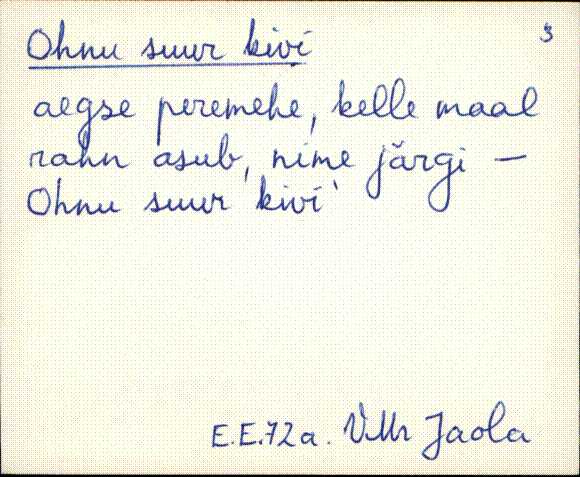 Ohnu suur kivi
3
aegse peremehe, kelle maal
rahn asub, nime järgi –
Ohnu suur 'kivi'
E.E.72a. VMr Jaola